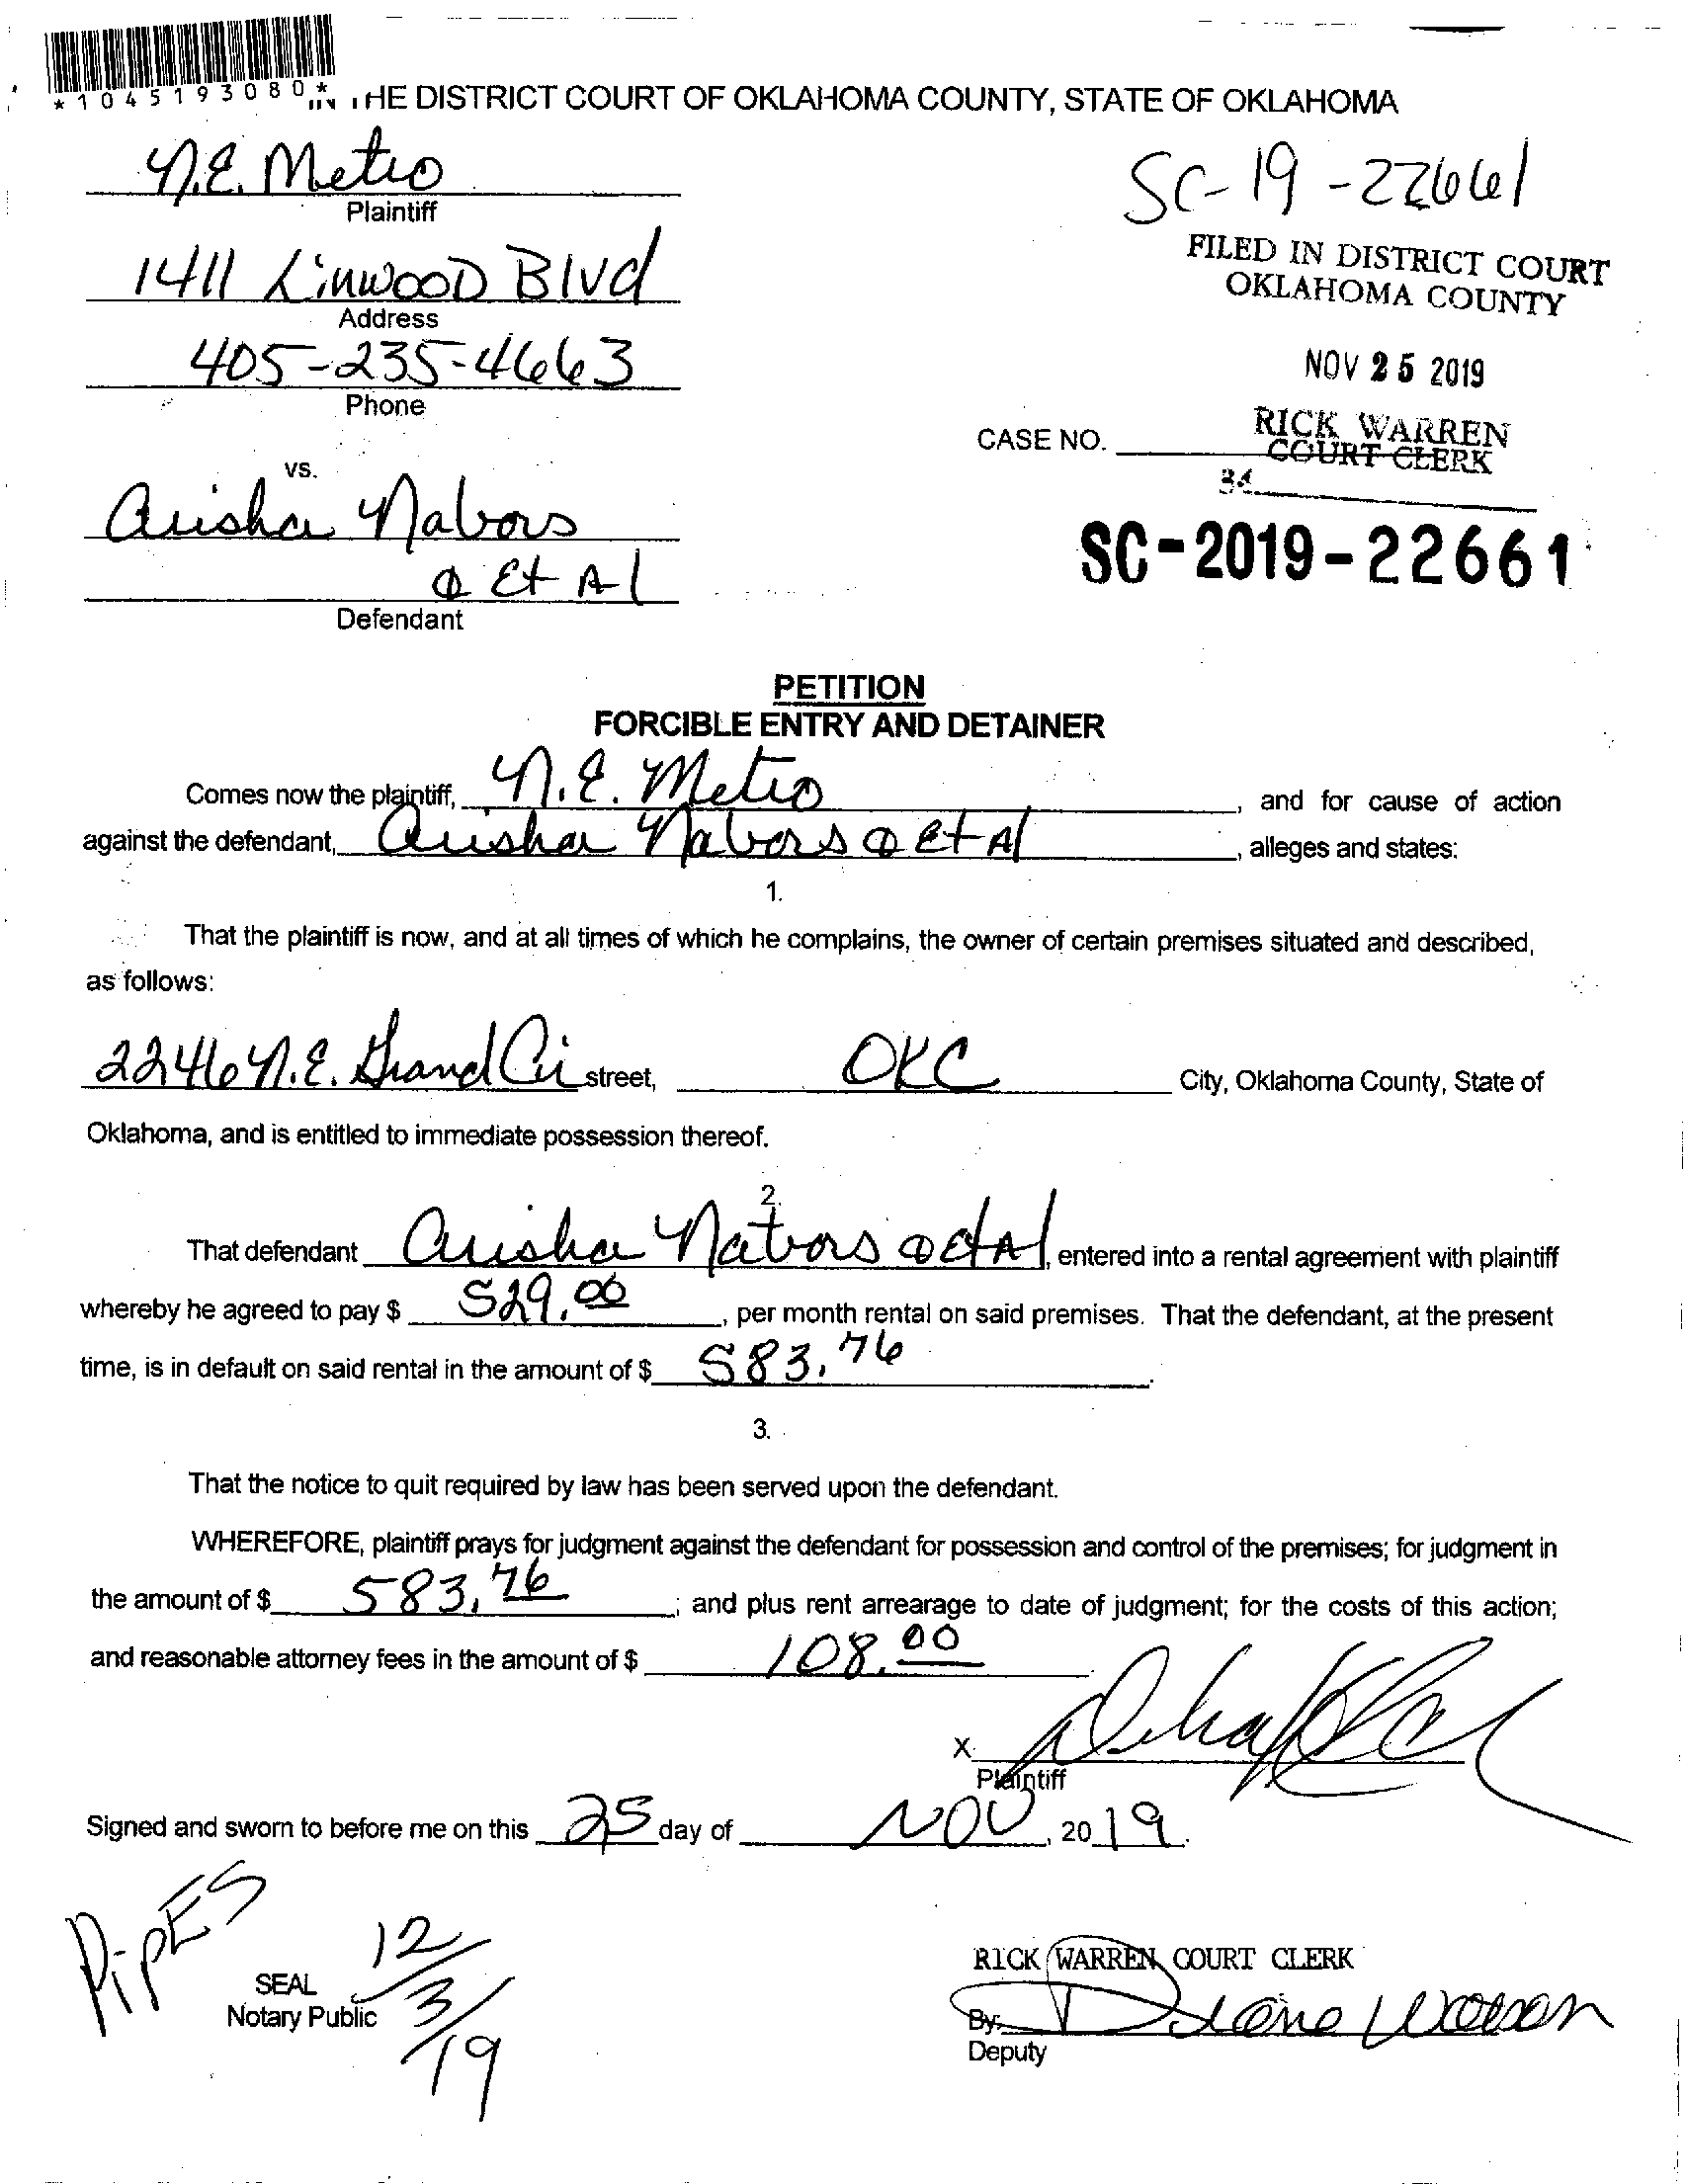 *1045193080*
IN THE DISTRICT COURT OF OKLAHOMA COUNTY, STATE OF OKLAHOMA
N.E. Metro
Plaintiff
SC-19-22661
1411 LinwooD Blvd
Address
FILED IN DISTRICT COURT
OKLAHOMA COUNTY
405-235-4663
Phone
NOV 25 2019
RICK WARREN
COURT CLERK
CASE NO.
34
vs.
Arisha Nabors
Et Al
Defendant
SC-2019-22661
PETITION
FORCIBLE ENTRY AND DETAINER
Comes now the plaintiff, N.E. Metro, and for cause of action
against the defendant, Arisha Nabors Et Al, alleges and states:
1.
That the plaintiff is now, and at all times of which he complains, the owner of certain premises situated and described,
as follows:
2246 N.E. Grand Cir street, OKC City, Oklahoma County, State of
Oklahoma, and is entitled to immediate possession thereof.
2.
That defendant Arisha Nabors et Al, entered into a rental agreement with plaintiff
whereby he agreed to pay $ 529.00, per month rental on said premises. That the defendant, at the present
time, is in default on said rental in the amount of $ 583.76.
3.
That the notice to quit required by law has been served upon the defendant.
WHEREFORE, plaintiff prays for judgment against the defendant for possession and control of the premises; for judgment in
the amount of $ 583.76; and plus rent arrearage to date of judgment; for the costs of this action;
and reasonable attorney fees in the amount of $ 108.00
X
Plaintiff
Signed and sworn to before me on this 25 day of NOV, 2019.
PipES
12/3/19
SEAL
Notary Public
RICK WARREN COURT CLERK
By: Diane Watson
Deputy